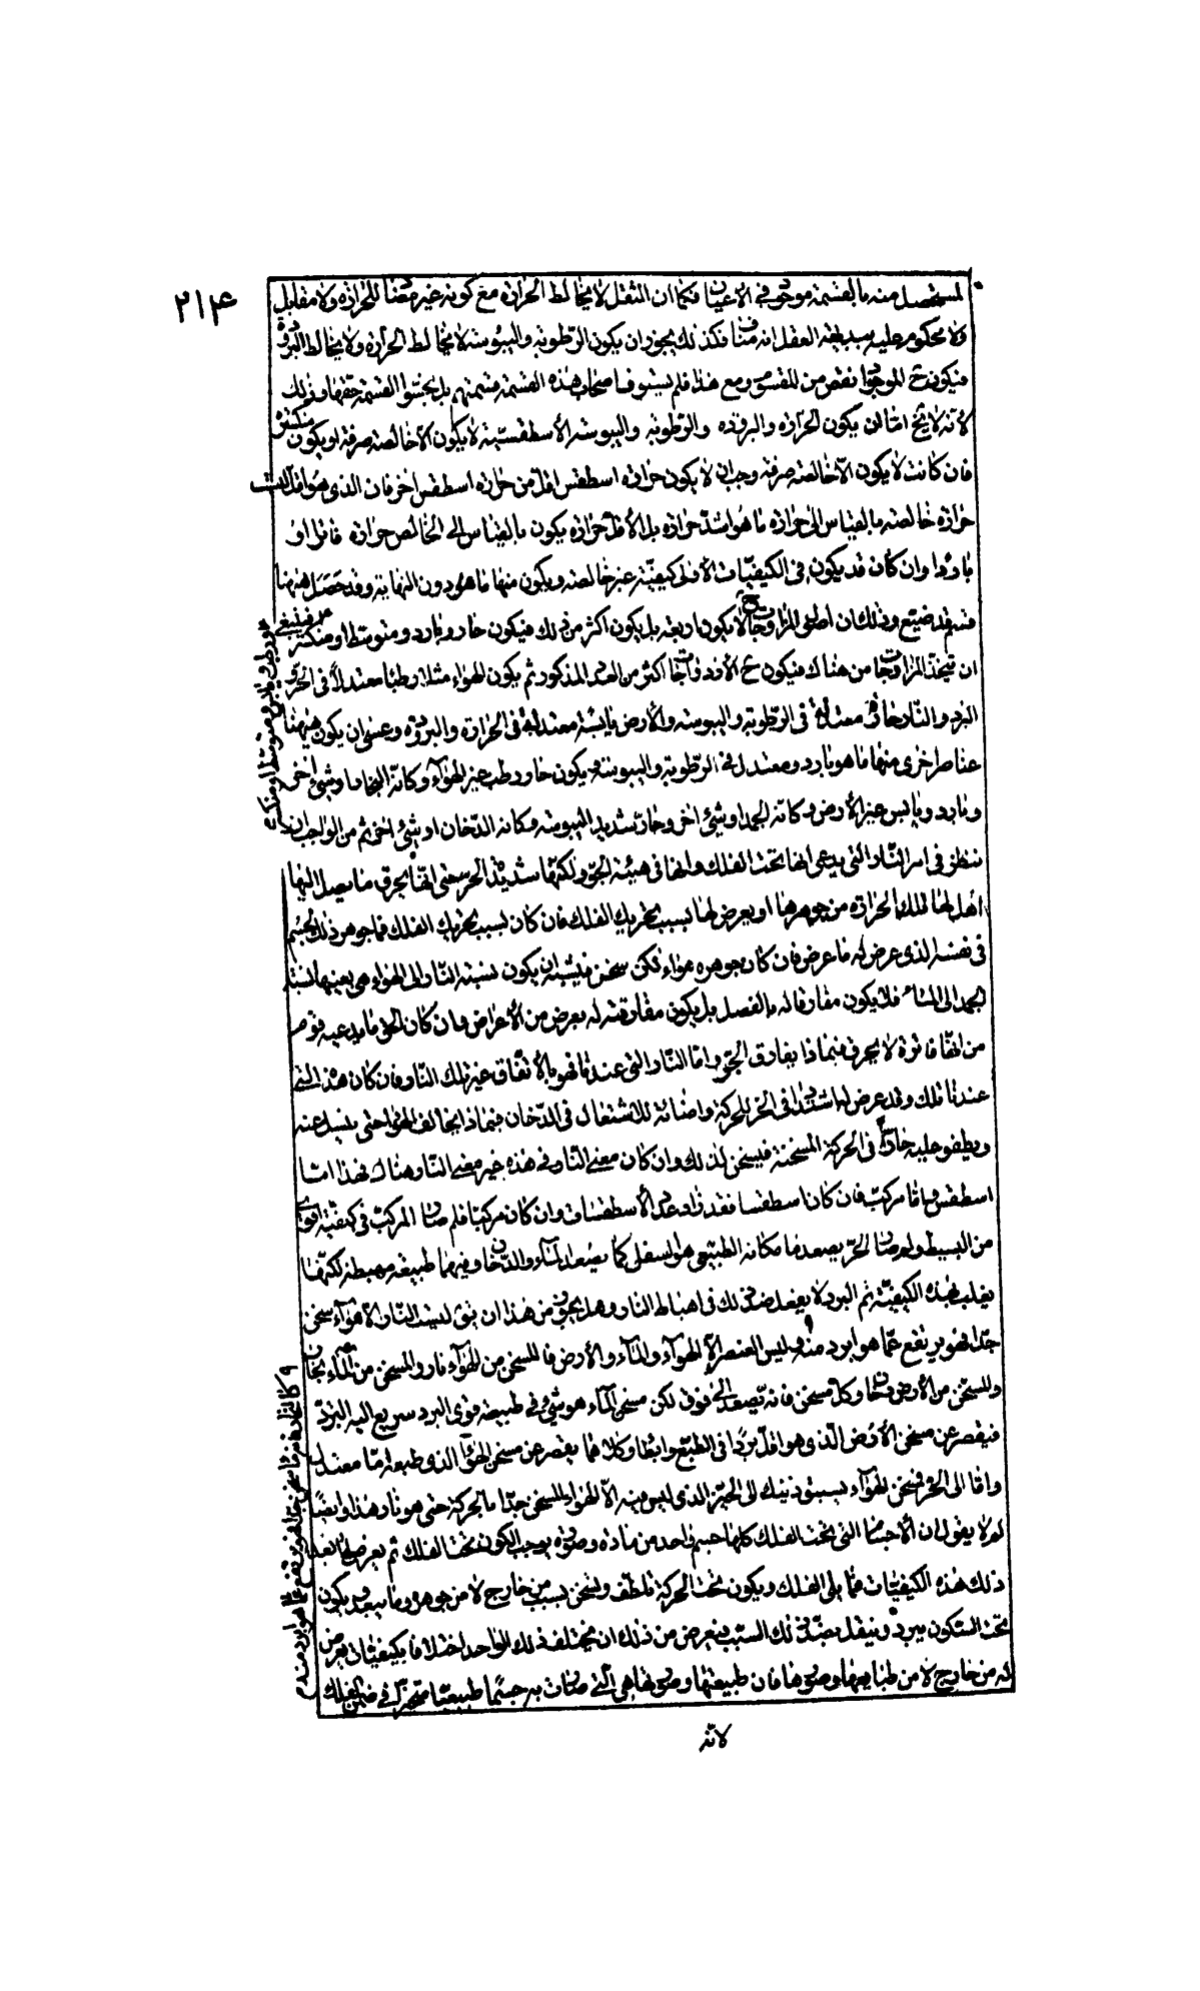 ٢١۴
المستحصل منه بالقسمة موجودا فى الاعيان فكما ان الثقل لا يخالط الحرارة مع كونه غير مضاد للحرارة ولا مقابل
ولا محكوم عليه ببديهة العقل انه مناف فكذلك يجوز ان يكون الرطوبة واليبوسة لا يخالط الحرارة ولا يخالط البرودة
فيكون ح الموجود انقص من المقسوم ومع هذا فلم يستوف اصحاب هذه القسمة قسمتهم بل بخسوا القسمة حقها وذلك
لانه لا يخ اما ان يكون الحرارة والبرودة والرطوبة واليبوسة الأسطقسية لا يكون الا خالصة صرفة او يكون منكسرة
فان كانت لا يكون الا خالصة صرفة وجب ان لا يكون حرارة اسطقس اقل من حرارة اسطقس اخر فان الذى هو اقل ليست
حرارة خالصة بالقياس الى حرارة ما هو اشد حرارة بل الأقل حرارة يكون بالقياس الى الخالص حرارة فاترا او
باردا وان كان قد يكون فى الكيفيات الأولى كيفية غير خالصة ويكون منها ما هو دون النهاية وقد حصل ههنا
قسم قد ضيع وذلك ان اصول المزاوجات ح لا يكون اربعة بل يكون اكثر من ذلك فيكون حار وبارد ومتوسط او منكسر فينبغى
ان تتخذ المزاوجات من هناك فيكون ح الأزدواجات اكثر من العدد المذكور ثم يكون الهواء مثلا رطبا معتدلا فى الحر و
البرد والنار حارة معتدلة فى الرطوبة واليبوسة والأرض يابسة معتدلة فى الحرارة والبرودة وعسى ان يكون ههنا
عناصر اخرى منها ما هو بارد ومعتدل فى الرطوبة واليبوسة ويكون حار رطب غير الهواء وكانه البخار او شىء اخر
وبارد ويابس غير الأرض وكانه الجمد او شىء اخر وحار شديد اليبوسة وكانه الدخان او شىء اخر ثم من الواجب ان
ننظر فى امر النار التى يدعى انها تحت الفلك وانها فى هيئة الجو ولكنها شديدة الحر معنى انها يحرق ما يصل اليها
اهل لها تلك الحرارة من جوهرها او يعرض لها بسبب تحريك الفلك فان كان بسبب تحريك الفلك فما جوهر ذلك الجسم
فى نفسه الذى عرض له ما عرض فان كان جوهره هواء لكن سخن فيشبه ان يكون نسبة النار الى الهواء هى بعينها نسبة
الجمد الى الماء فلا يكون مفارقا له بالفصل بل يكون مفارقته له بعرض من الأعراض وان كان الحق ما يدعيه قوم
من انها فاترة لا يحرق فبماذا يفارق الجو واما النار التى عندنا فهو بالأتفاق غير تلك النار فان كان هذه التى
عندنا تلك وقد عرض لها اشتداد فى الحر للحركة واصابة للاشتعال فى الدخان فبماذا يخالف الهواء حتى ينسل عنه
ويطفو عليه حادا فى الحركة المسخنة فيسخن لذلك وان كان معنى النار فى هذه غير معنى النار هناك فهذا اما
اسطقس واما مركب فان كان اسطقسا فقد زاد عدد الأسطقسات وان كان مركبا فلم صار المركب فى كيفيته اقوى
من البسيط ولم صار الحر يصعد ما مكانه الطبيعى هو اسفل كما يصعد الماء والدخان وفيهما طبيعة مهبطة لكنها
يغلب بهذه الكيفية ثم البرد لا يفعل ضد ذلك فى اهباط النار وهل يجوز من هذا ان يق ليست النار الا هواء سخن
جدا فهو يرتفع عما هو ابرد منه وليس العنصر الا الهواء والماء والأرض فالمسخن من الهواء نار والمسخن من الماء بخار
والمسخن من الأرض دخان وكل مسخن فانه يصعد الى فوق لكن مسخن الماء هو شىء فى طبيعته قوى البرد سريع اليه التبرد
فيقصر عن مسخن الأرض الذى هو اقل بردا فى الطبع وابطأ وكلاهما يقصر عن مسخن الهواء الذى طبعه اما معتدل
واما الى الحر فمسخن الهواء يسبق ذينك الى الحيز الذى ليس فيه الا الهواء المسخن جدا بالحركة حتى هو نار وهذا وايضا
لم لا يقول ان الأجسام التى تحت الفلك كلها جسم واحد من مادة وصورة يوجب الكون تحت الفلك ثم يعرض لها بعد
ذلك هذه الكيفيات فما يلى الفلك ويكون تحت الحركة تلطف وتسخن بسبب من خارج لا من جوهره وما يبعد ويكون
تحت السكون يبرد ويثقل بضد ذلك السبب فيعرض من ذلك ان يختلف ذلك الواحد اختلافا بكيفيات يعرض
له من خارج لا من طباعها وصورها فان طبيعتها وصورتها هى التى صارت به جسما طبيعيا متحركا فى ضمن الفلك
لانه